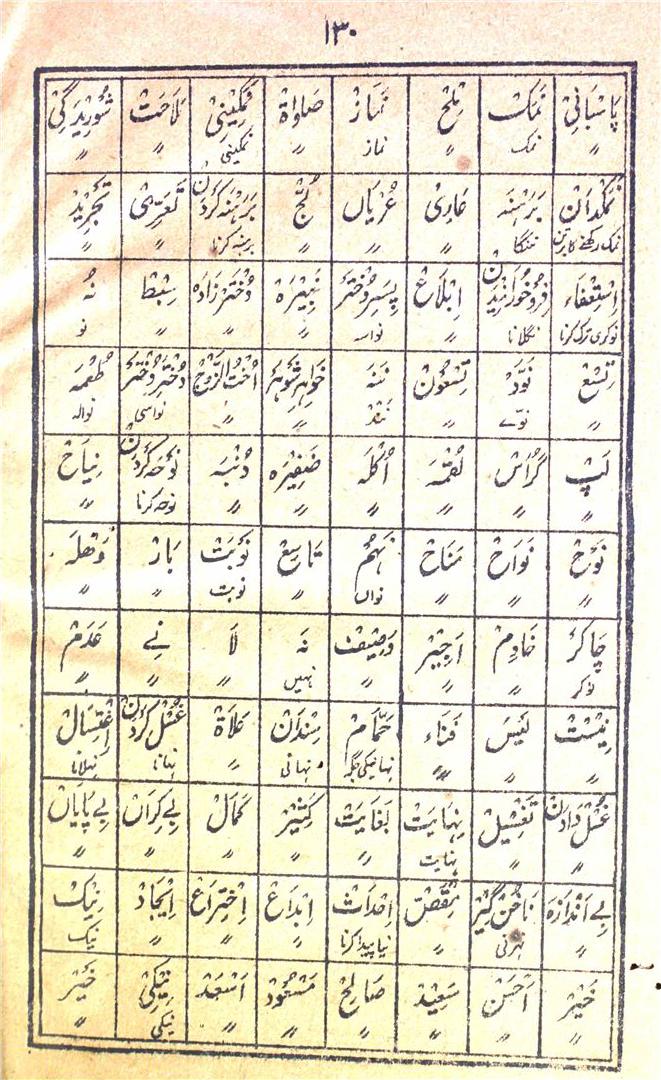 ۱۳۰
پَاسْبَانِیْ نَمَکْ مِلْحْ نَمَازْ صَلوٰۃْ نَمَکِیْنِیْ مَلَاحَتْ شُوْرِیْدَگِیْ
〃 نمک 〃 نماز 〃 نمکینی 〃 〃
نَمَکْدَانْ بَرَہْنَہ عَارِیْ عُرْیَاں لُچّ بَرَہْنَہ کَرْدَنْ تَعَرِّیْ تَجْرِیْدْ
نمک رکھنے کا برتن ننگا 〃 〃 〃 برہنہ کرنا 〃 〃
اِسْتِعْفَاء فُرُوْخُورَانِیْدَنْ اِبْلَاعْ پِسَرِدُخْتَرْ نَبِیْرَہْ دُخْتَرْزَادَہ سِبْطْ نُہْ
نوکری ترک کرنا نگلانا 〃 نواسہ 〃 〃 〃 نو
تِسْعْ نَوَدْ تِسْعُوْنْ نَنَہ خَوَاہَرِشَوْہَرْ اُخْتُ الزَّوْجْ دُخْتَرِدُخْتَرْ طُعْمَہ
〃 نوّے 〃 نند 〃 〃 نواسی نوالہ
لَپْ گُرَاسْ لُقْمَہ اُکْلَہ ضَفِیْرَہ دُنْبَہ نَوْحَہ کَرْدَنْ نِیَاحْ
〃 〃 〃 〃 〃 〃 نوحہ کرنا 〃
نَوْحْ نَوَاحْ مَنَاحْ نَہُمْ تَاسِعْ نَوْبَتْ بَارْ وَھْلَہ
〃 〃 〃 نواں 〃 نوبت 〃 〃
چَاکَرْ خَادِمْ اَجِیْرْ وَصِیْفْ نَہ لَا نے عَدَمْ
نوکر 〃 〃 〃 نہیں 〃 〃 〃
نِیْسْتْ لَیْسَ فَنَاء حَمَّامْ سِنْدَانْ عَلَاۃْ غُسْل کَرْدَنْ اِغْتِسَالْ
〃 〃 〃 نہانیکی جگہ نہائی 〃 نہانا نہلانا
غُسْل دَادَنْ تَغْسِیْلْ نِہَایَتْ بَغَایَتْ کَثِیْرْ کَمَالْ بے کِرَاں بے پَایَاں
〃 〃 نہایت 〃 〃 〃 〃 〃
بے اَنْدَازَہ نَاخُنْ گِیْرْ مِقَصّ اِحْدَاثْ اِبْدَاعْ اِخْتِرَاعْ اِیْجَادْ نِیْکْ
〃 نہرنی 〃 نیا پیدا کرنا 〃 〃 〃 نیک
خَیْرْ اَحْسَنْ سَعِیْدْ صَالِحْ مَسْعُوْدْ اَسْعَدْ نِیْکِیْ خَیْرْ
〃 〃 〃 〃 〃 〃 نیکی 〃